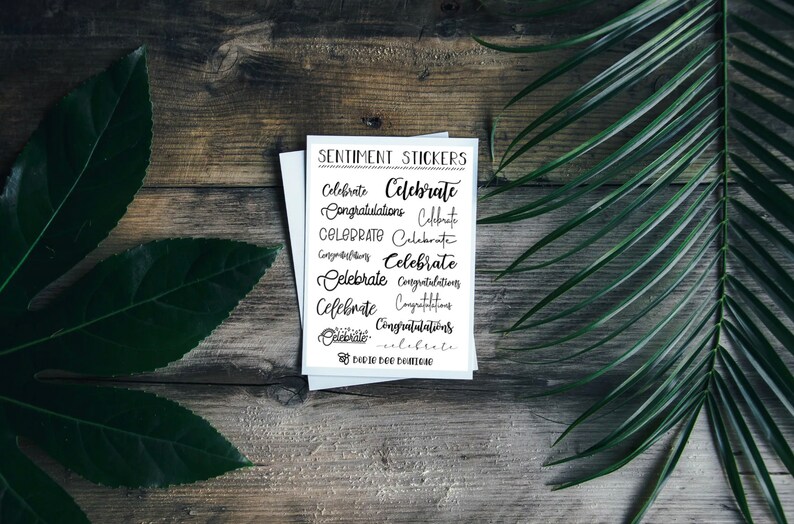 SENTIMENT STICKERS
Celebrate Celebrate
Congratulations Celebrate
CELEBRATE Celebrate
Congratulations Celebrate
Celebrate Congratulations
Celebrate Congratulations
Celebrate Congratulations
celebrate
BODIE BEE BOUTIQUE